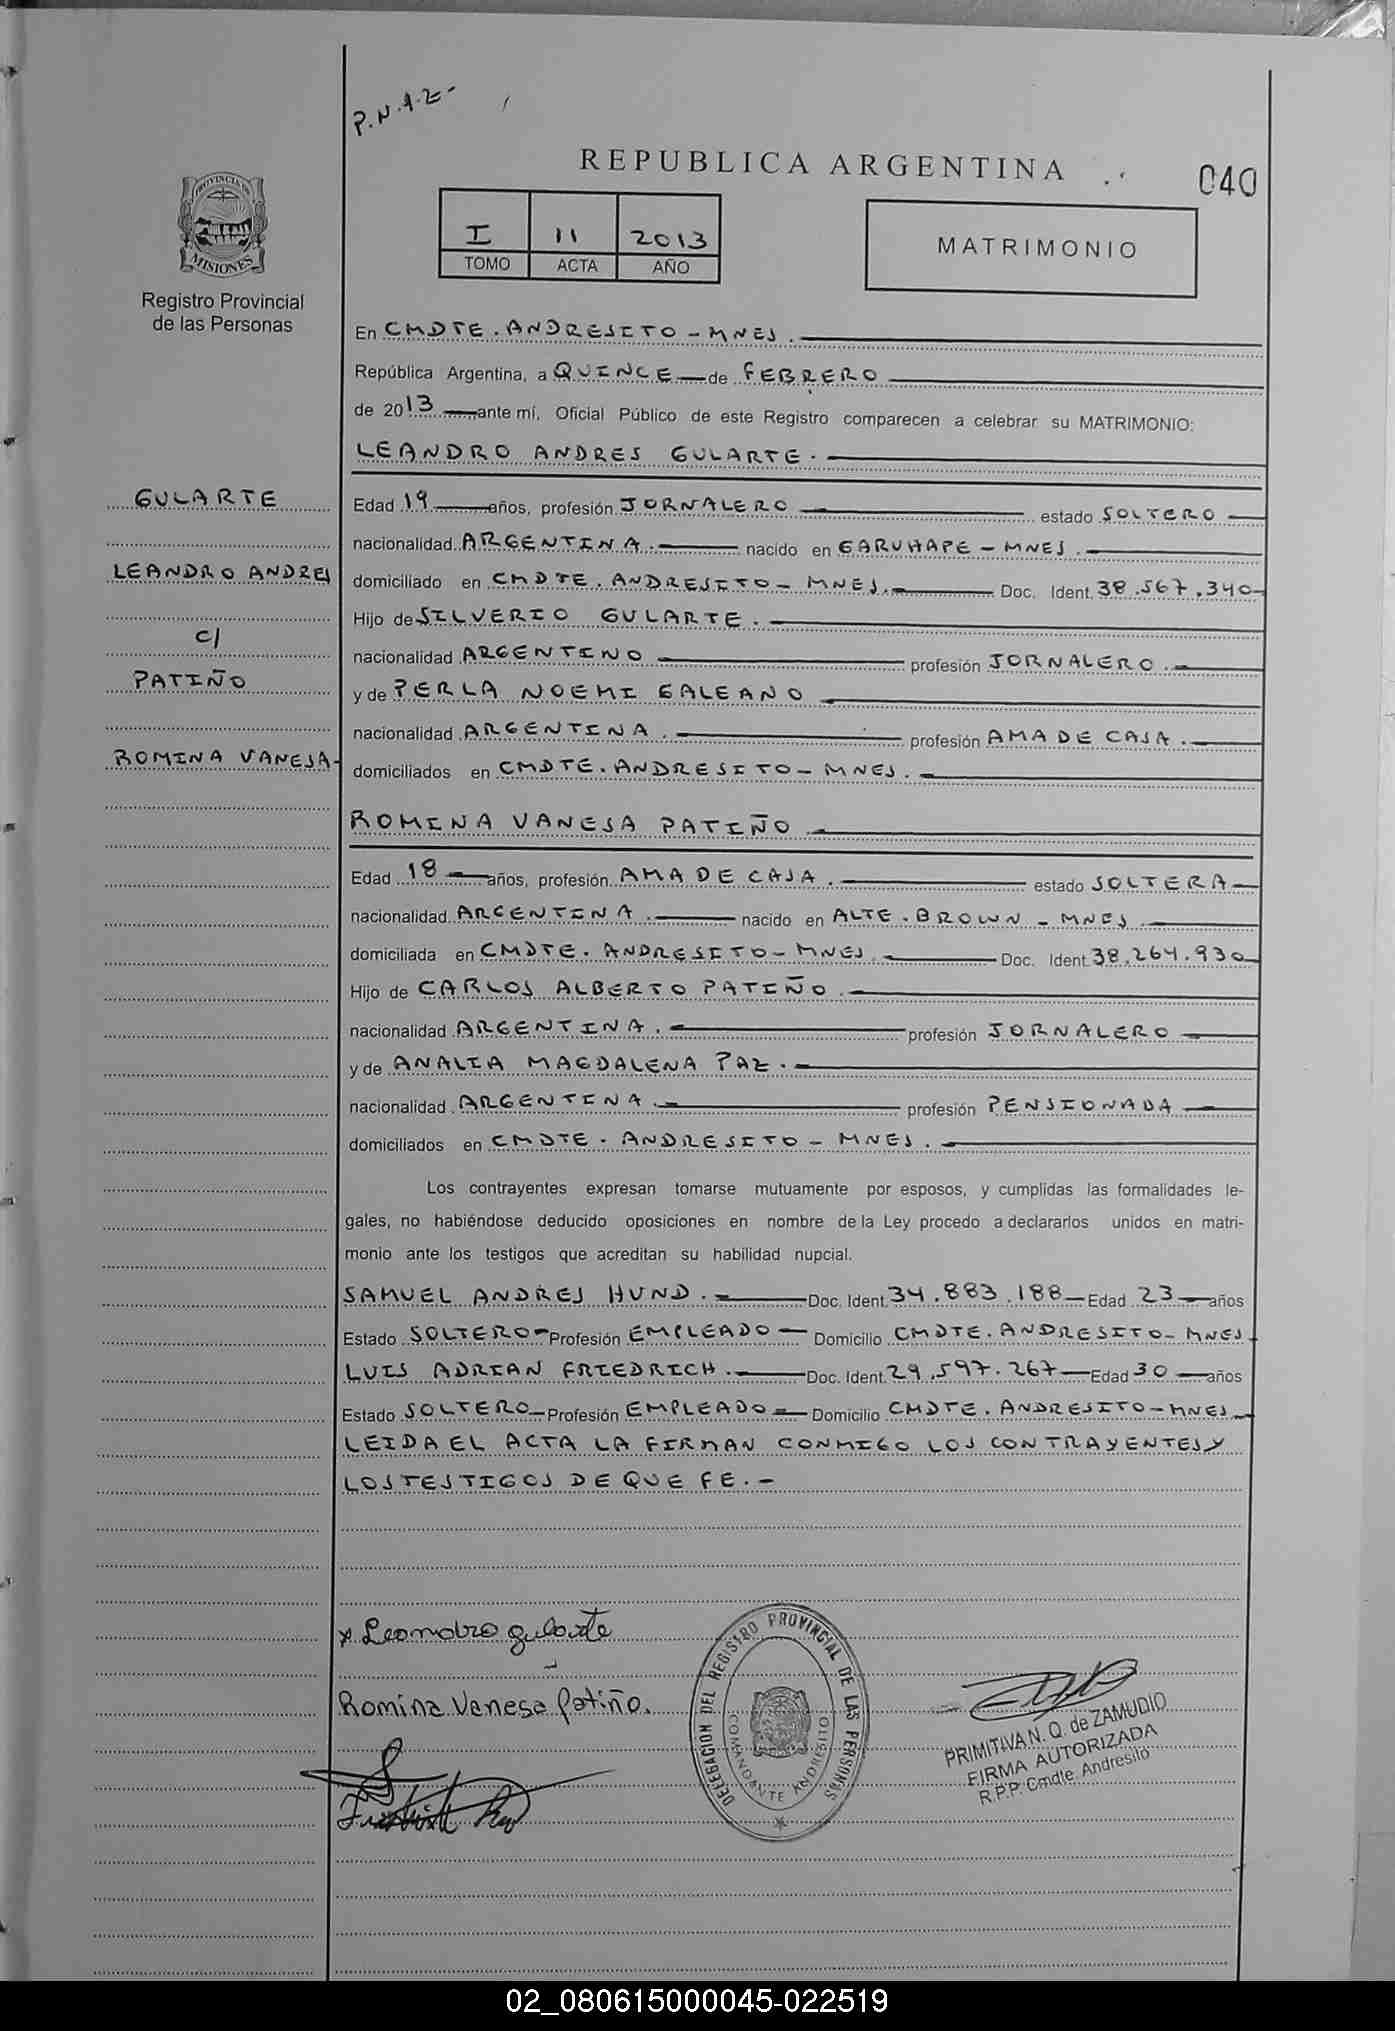 P.N.A.Z-
REPUBLICA ARGENTINA
040
PROVINCIA DE
MISIONES
Registro Provincial
de las Personas
I 11 2013
TOMO ACTA AÑO
MATRIMONIO
En CMDTE. ANDRESITO - MNES.
República Argentina, a QUINCE de FEBRERO
de 2013 ante mí, Oficial Público de este Registro comparecen a celebrar su MATRIMONIO:
LEANDRO ANDRES GULARTE.
GULARTE
LEANDRO ANDRES
C/
PATIÑO
ROMINA VANESA-
Edad 19 años, profesión JORNALERO estado SOLTERO
nacionalidad ARGENTINA. nacido en GARUHAPE - MNES.
domiciliado en CMDTE. ANDRESITO - MNES. Doc. Ident. 38.567.340
Hijo de SILVERIO GULARTE.
nacionalidad ARGENTINO profesión JORNALERO.
y de PERLA NOEMI GALEANO
nacionalidad ARGENTINA. profesión AMA DE CASA.
domiciliados en CMDTE. ANDRESITO - MNES.
ROMINA VANESA PATIÑO
Edad 18 años, profesión AMA DE CASA. estado SOLTERA
nacionalidad ARGENTINA. nacido en ALTE. BROWN - MNES
domiciliada en CMDTE. ANDRESITO - MNES. Doc. Ident. 38.264.930
Hijo de CARLOS ALBERTO PATIÑO.
nacionalidad ARGENTINA. profesión JORNALERO
y de ANALIA MAGDALENA PAZ.
nacionalidad ARGENTINA. profesión PENSIONADA
domiciliados en CMDTE. ANDRESITO - MNES.
Los contrayentes expresan tomarse mutuamente por esposos, y cumplidas las formalidades le-
gales, no habiéndose deducido oposiciones en nombre de la Ley procedo a declararlos unidos en matri-
monio ante los testigos que acreditan su habilidad nupcial.
SAMUEL ANDRES HUND. Doc. Ident. 34.883.188 Edad 23 años
Estado SOLTERO Profesión EMPLEADO Domicilio CMDTE. ANDRESITO - MNES
LUIS ADRIAN FRIEDRICH. Doc. Ident. 29.597.267 Edad 30 años
Estado SOLTERO Profesión EMPLEADO Domicilio CMDTE. ANDRESITO - MNES
LEIDA EL ACTA LA FIRMAN CONMIGO LOS CONTRAYENTES Y
LOS TESTIGOS DE QUE FE.-
x Leomdro gularte
Romina Vanesa Patiño.
DELEGACION DEL REGISTRO PROVINCIAL DE LAS PERSONAS
COMANDANTE ANDRESITO
PRIMITIVA N. Q. de ZAMUDIO
FIRMA AUTORIZADA
R.P.P. Cmdte. Andresito
02_080615000045-022519